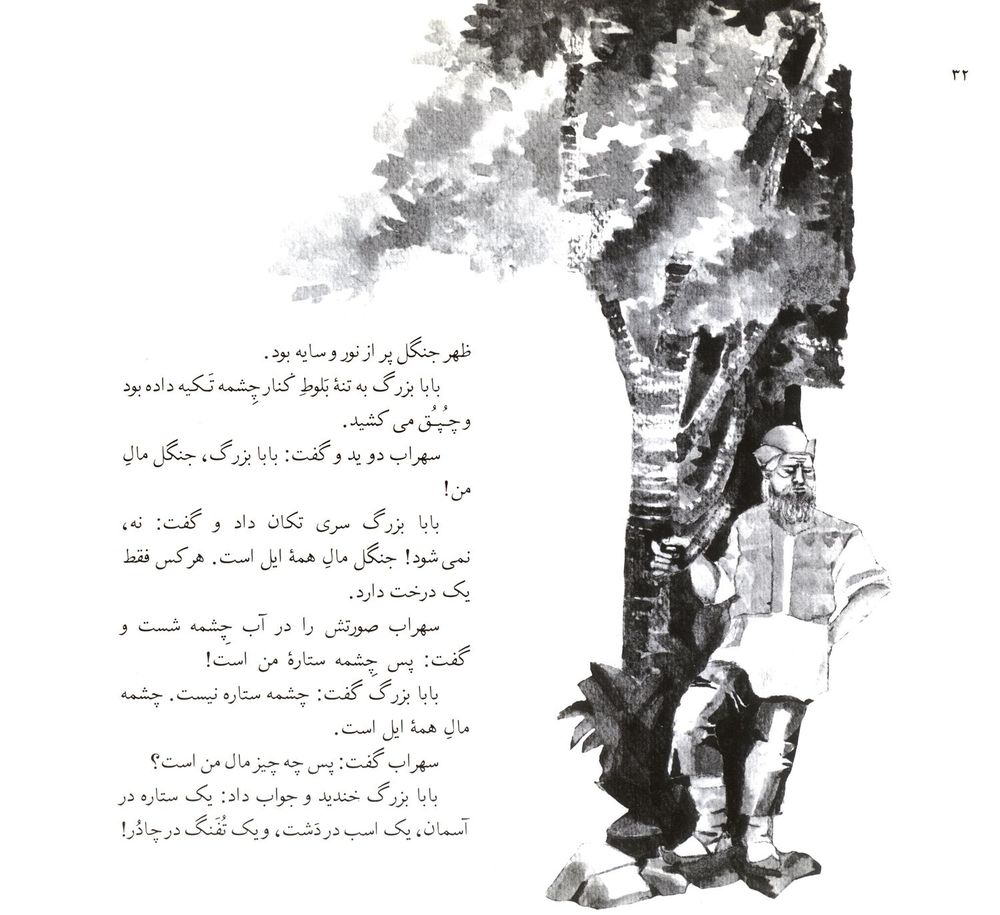 ۳۲
ظهر جنگل پر از نور و سایه بود.
بابا بزرگ به تنهٔ بَلوطِ کنار چِشمه تَکیه داده بود
و چُپُق می کشید.
سهراب دوید و گفت: بابا بزرگ، جنگل مالِ
من!
بابا بزرگ سری تکان داد و گفت: نه،
نمی شود! جنگل مالِ همهٔ ایل است. هرکس فقط
یک درخت دارد.
سهراب صورتش را در آب چِشمه شست و
گفت: پس چِشمه ستارهٔ من است!
بابا بزرگ گفت: چشمه ستاره نیست. چشمه
مالِ همهٔ ایل است.
سهراب گفت: پس چه چیز مال من است؟
بابا بزرگ خندید و جواب داد: یک ستاره در
آسمان، یک اسب در دَشت، و یک تُفَنگ در چادُر!